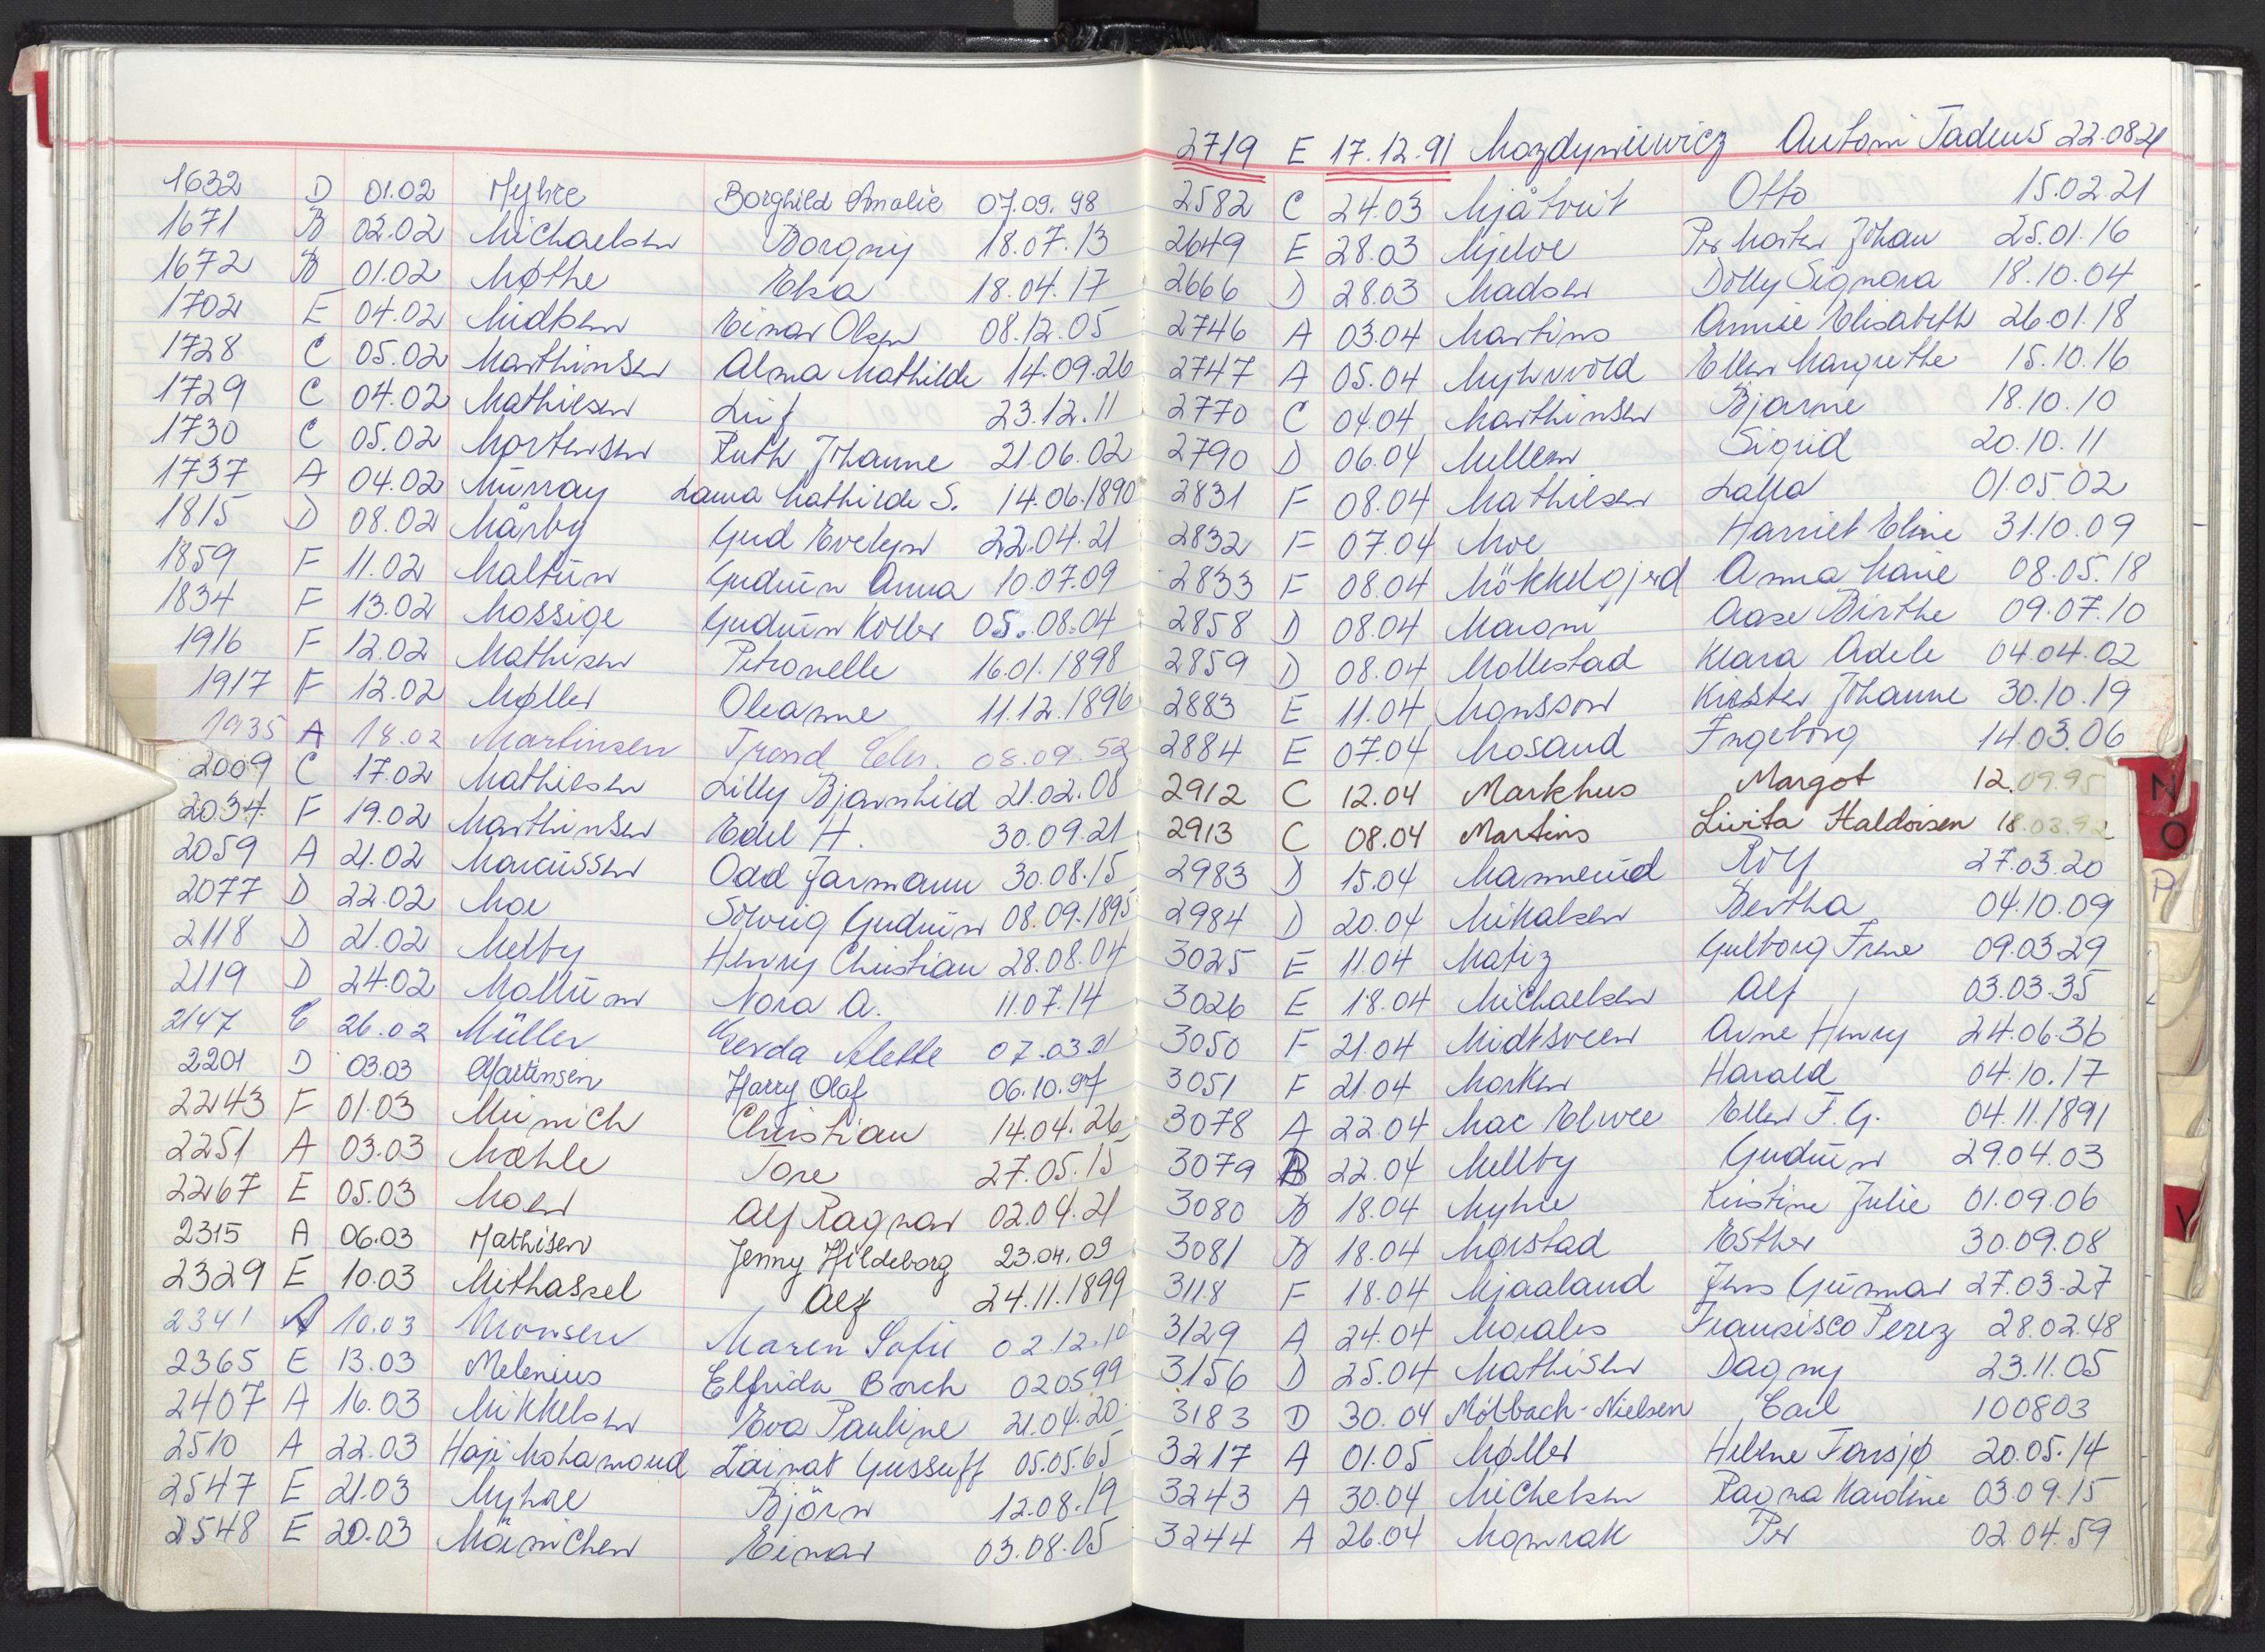 1632 D 01.02 Myhre Borghild Amalie 07.09.98
1671 B 02.02 Michaelsen Borgny 18.07.13
1672 B 01.02 Møthe Elsa 18.04.17
1702 E 04.02 Midtsen Einar Olsen 08.12.05
1728 C 05.02 Marthinsen Alma Mathilde 14.09.26
1729 C 04.02 Mathiesen Leif 23.12.11
1730 C 05.02 Mortensen Ruth Johanne 21.06.02
1737 A 04.02 Murray Laura Mathilde S. 14.06.1890
1815 D 08.02 Mårby Gud Evelyn 22.04.21
1859 F 11.02 Maltun Gudrun Anna 10.07.09
1834 F 13.02 Mossige Gudrun Koller 05.08.04
1916 F 12.02 Mathisen Petronelle 16.01.1898
1917 F 12.02 Møller Oleanne 11.12.1896
1935 A 18.02 Martinsen Trond 08.09.52
2009 C 17.02 Mathiesen Lilly Bjarnhild 21.02.08
2034 F 19.02 Marthinsen Edel H. 30.09.21
2059 A 21.02 Marcussen Odd Jarmann 30.08.15
2077 D 22.02 Moe Solveig Gudrun 08.09.1895
2118 D 21.02 Melby Henry Christian 28.08.04
2119 D 24.02 Moltun Nora A. 11.07.14
2147 E 26.02 Müller Gerda Alette 07.03.21
2201 D 03.03 Martinsen Harry Olaf 06.10.97
2243 F 01.03 Munich Christian 14.04.26
2251 A 03.03 Mæhle Tore 27.05.15
2267 E 05.03 Moen Alf Ragnar 02.04.21
2315 A 06.03 Mathisen Jenny Hildeborg 23.04.09
2329 E 10.03 Mithassel Alf 24.11.1899
2341 A 10.03 Monsen Maren Sofie 02.12.10
2365 E 13.03 Melenius Elfrida Borch 020599
2407 A 16.03 Mikkelsen Eva Pauline 21.04.20
2510 A 22.03 Haji Mohamoud Zainat Yussuff 05.05.65
2547 E 21.03 Myhre Björn 12.08.19
2548 E 20.03 Mänichen Einar 03.08.05
2719 E 17.12.91 Mozdyniewicz Antoni Tadeus 22.0821
2582 C 24.03 Mjåtveit Otto 15.02.21
2649 E 28.03 Mjelve Per Morten Johan 25.01.16
2666 D 28.03 Madsen Dolly Signora 18.10.04
2746 A 03.04 Martins Annie Elisabeth 26.01.18
2747 A 05.04 Myhrvold Ellen Margrethe 15.10.16
2770 C 04.04 Marthinsen Bjarne 18.10.10
2790 D 06.04 Mellem Sigrid 20.10.11
2831 F 08.04 Mathiesen Lalla 01.05.02
2832 F 07.04 Moe Harriet Eline 31.10.09
2833 F 08.04 Mökkelgjerd Anna Marie 08.05.18
2858 D 08.04 Maroni Aase Birthe 09.07.10
2859 D 08.04 Mollestad Klara Adele 04.04.02
2883 E 11.04 Monsson Kirsten Johanne 30.10.19
2884 E 07.04 Mosand Ingeborg 14.03.06
2912 C 12.04 Markhus Margot 12.09.95
2913 C 08.04 Martins Livita Haldorsen 18.03.92
2983 D 15.04 Mannerud Rolf 27.03.20
2984 D 20.04 Mikalsen Bertha 04.10.09
3025 E 11.04 Matiz Gulborg Irene 09.03.29
3026 E 18.04 Michaelsen Alf 03.03.35
3050 F 21.04 Midtsveen Arne Henry 24.06.36
3051 F 21.04 Morken Harald 04.10.17
3078 A 22.04 Mac Elwee Ellen F.G. 04.11.1891
3079 B 22.04 Mellby Gudrun 29.04.03
3080 B 18.04 Myhre Kristine Julie 01.09.06
3081 B 18.04 Mørstad Esther 30.09.08
3118 F 18.04 Mjaaland Jens Gunnar 27.03.27
3129 A 24.04 Morales Franzisco Perez 28.02.48
3156 D 25.04 Mathisen Dagny 23.11.05
3183 D 30.04 Mölbach-Nielsen Carl 100803
3217 A 01.05 Møller Helene Torsjø 20.05.14
3243 A 30.04 Michelsen Ragna Karoline 03.09.15
3244 A 26.04 Momrak Per 02.04.59
N
O
P
V